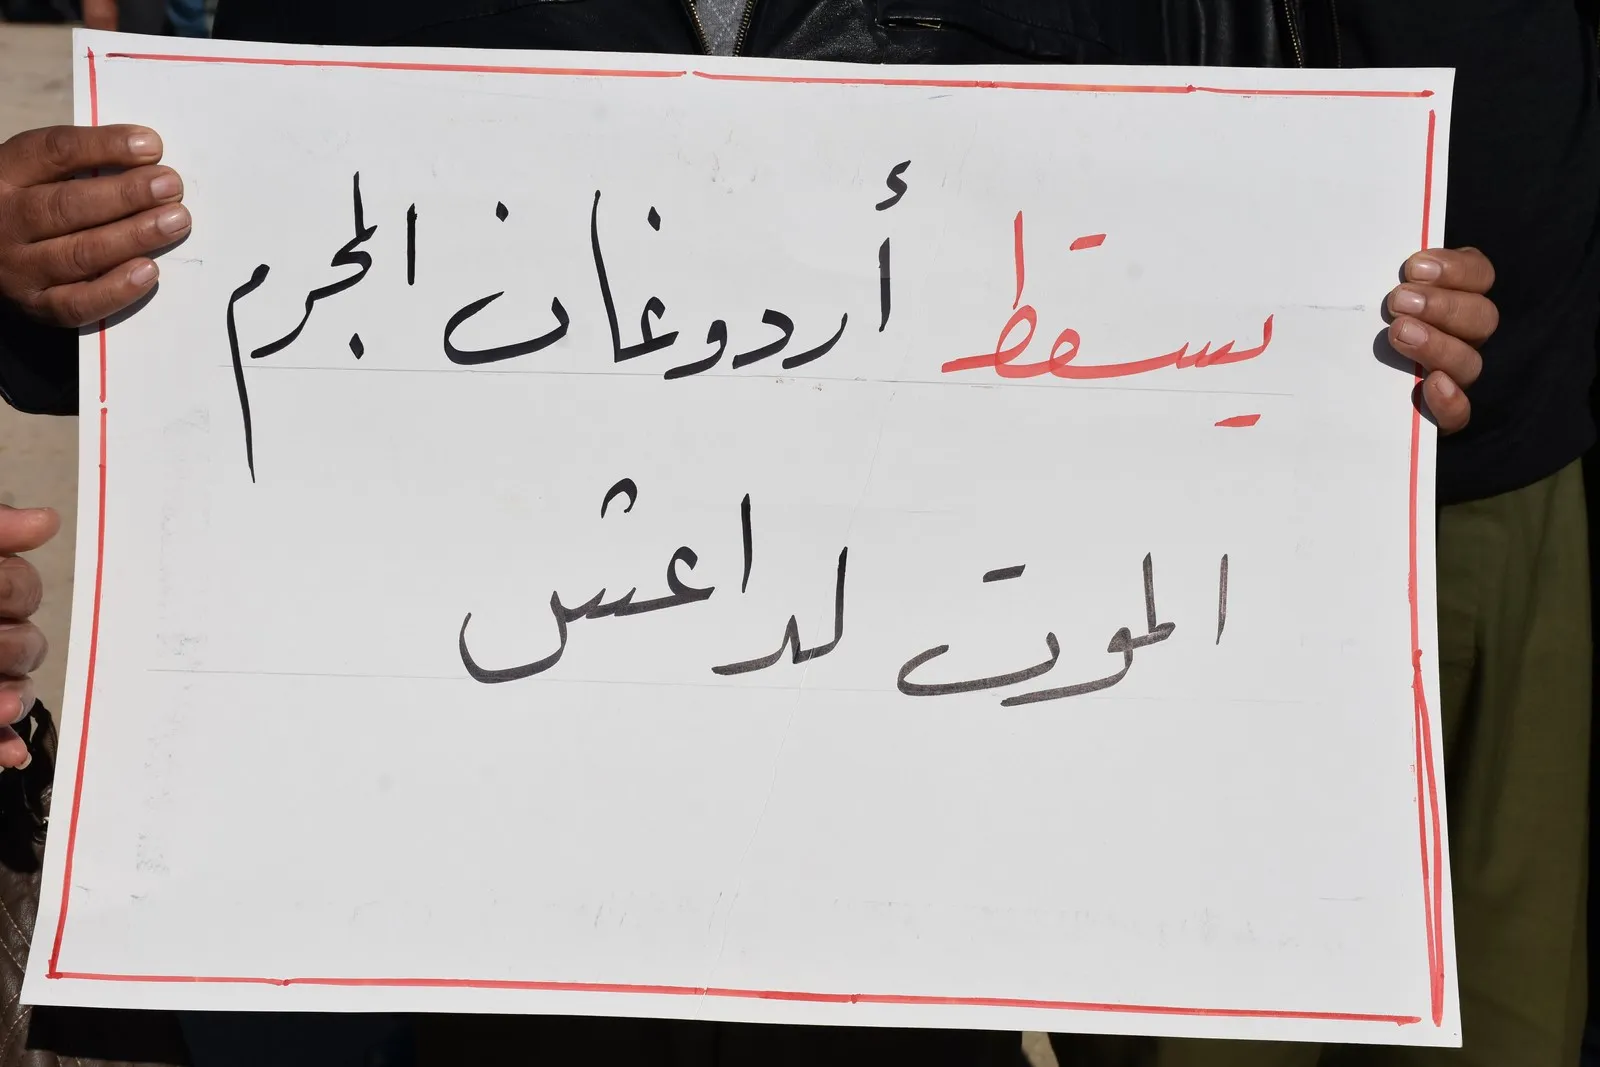 يسقط أردوغان المجرم
الموت لداعش